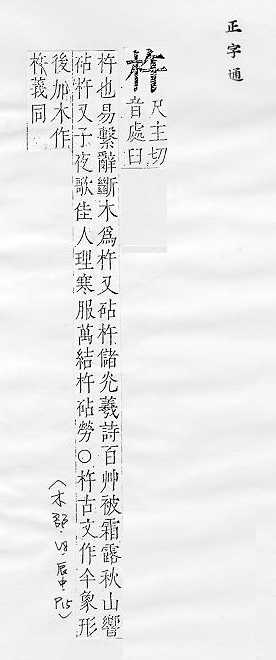 正字通
杵
尺主切
音處臼
杵也易繫辭斷木爲杵又砧杵儲光羲詩百艸被霜露秋山響
砧杵又子夜歌佳人理寒服萬結杵砧勞○杵古文作午象形
後加木作
杵義同
(木部.V8.辰中.P.15)